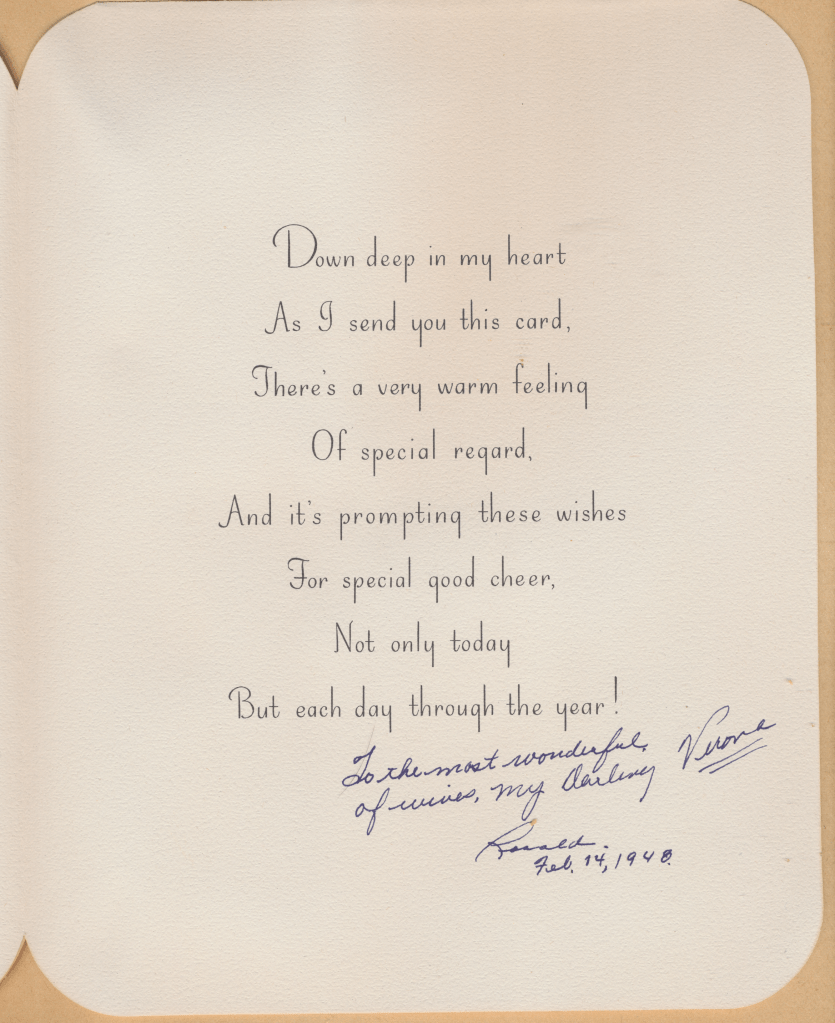 Down deep in my heart
As I send you this card,
There's a very warm feeling
Of special regard,
And it's prompting these wishes
For special good cheer,
Not only today
But each day through the year!
To the most wonderful, Verona
of wives, my Darling
Ronald.
Feb. 14, 1948.